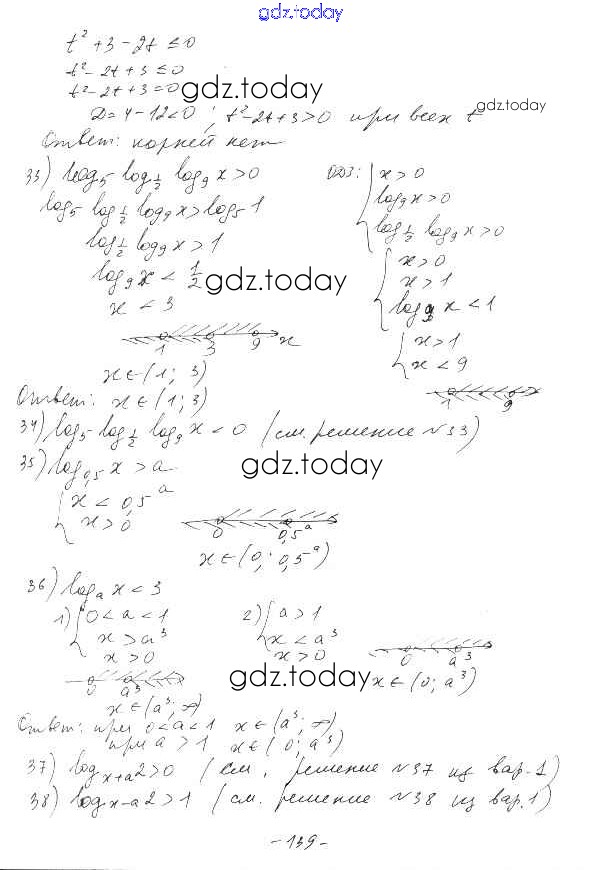 gdz.today
t² + 3 - 2t ≤ 0
t² - 2t + 3 ≤ 0
t² - 2t + 3 = 0
gdz.today
gdz.today
D = 4 - 12 < 0 ; t² - 2t + 3 > 0 при всех t
Ответ: корней нет
33) log₅ log_{1/2} log₉ x > 0
ОДЗ: { x > 0
log₉ x > 0
log_{1/2} log₉ x > 0
log₅ log_{1/2} log₉ x > log₅ 1
log_{1/2} log₉ x > 1
{ x > 0
x > 1
log₉ x < 1
log₉ x < 1/2
gdz.today
x < 3
{ x > 1
x < 9
1 3 9 x
x ∈ (1; 3)
1 9
Ответ: x ∈ (1; 3)
34) log₅ log_{1/2} log₉ x < 0 (см. решение №33)
35) log_{0,5} x > a
gdz.today
{ x < 0,5^a
x > 0
0 0,5^a
x ∈ (0; 0,5^a)
36) log_a x < 3
1) { 0 < a < 1
x > a³
x > 0
2) { a > 1
x < a³
x > 0
0 a³
0 a³
gdz.today
x ∈ (0; a³)
x ∈ (a³; ∞)
Ответ: при 0 < a < 1 x ∈ (a³; ∞)
при a > 1 x ∈ (0; a³)
37) log_{x+a} 2 > 0 (см. решение №37 из вар.1)
38) log_{x-a} 2 > 1 (см. решение №38 из вар.1)
- 139 -